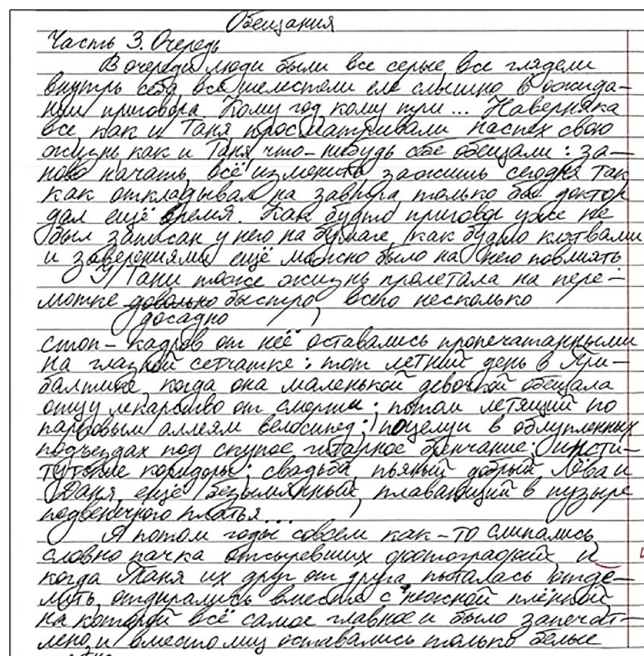 Обещания
Часть 3. Очередь
В очереди люди были все серые все глядели
внутрь себя все шелестели еле слышно в ожида-
нии приговора Кому год кому три ... Наверняка
все как и Таня просматривали наспех свою
жизнь как и Таня что-нибудь себе обещали : за-
ново начать, всё изменить зажить сегодня так
как откладывал на завтра только бы доктор
дал ещё время. Как будто приговор уже не
был записан у него на бумаге, как будто клятвами
и заверениями ещё можно было на него повлиять
У Тани тоже жизнь пролетала на пере-
мотке довольно быстро, всего несколько
досадно
стоп-кадров от неё оставались пропечатанными
на глазной сетчатке : тот летний день в При-
балтике, когда она маленькой девочкой обещала
отцу лекарство от смерти ; потом летящий по
парковым аллеям велосипед ; поцелуи в облупленных
подъездах под скупое гитарное бренчание ; инсти-
тутские коридоры ; свадьба, пьяный добрый Лёва и
Ваня, ещё безымянный, плавающий в пузыре
подвенечного платья...
А потом годы совсем как-то слипались,
словно пачка отсыревших фотографий и
когда Таня их друг от друга пыталась отде-
лить, отдирались вместе с нежной плёнкой
на которой всё самое главное и было запечат-
лено, и вместо лиц оставались только белые